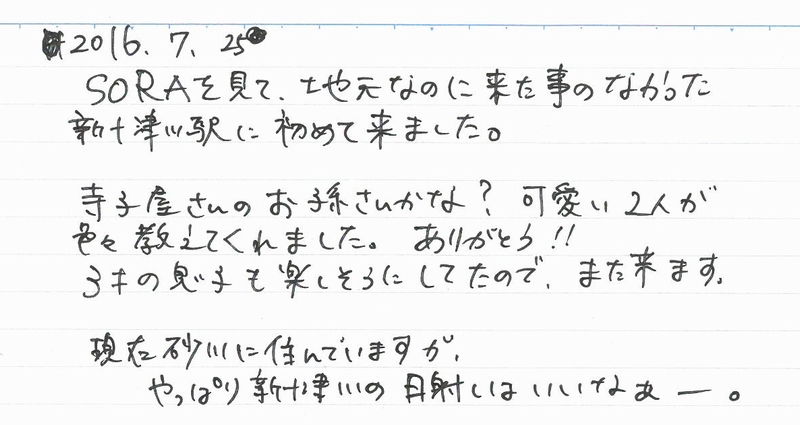 2016. 7. 25
SORAを見て、地元なのに来た事のなかった
新十津川駅に初めて来ました。
寺子屋さんのお孫さんかな? 可愛い2人が
色々教えてくれました。ありがとう!!
3才の息子も楽しそうにしてたので、また来ます。
現在砂川に住んでいますが、
やっぱり新十津川の日射しはいいなぁー。